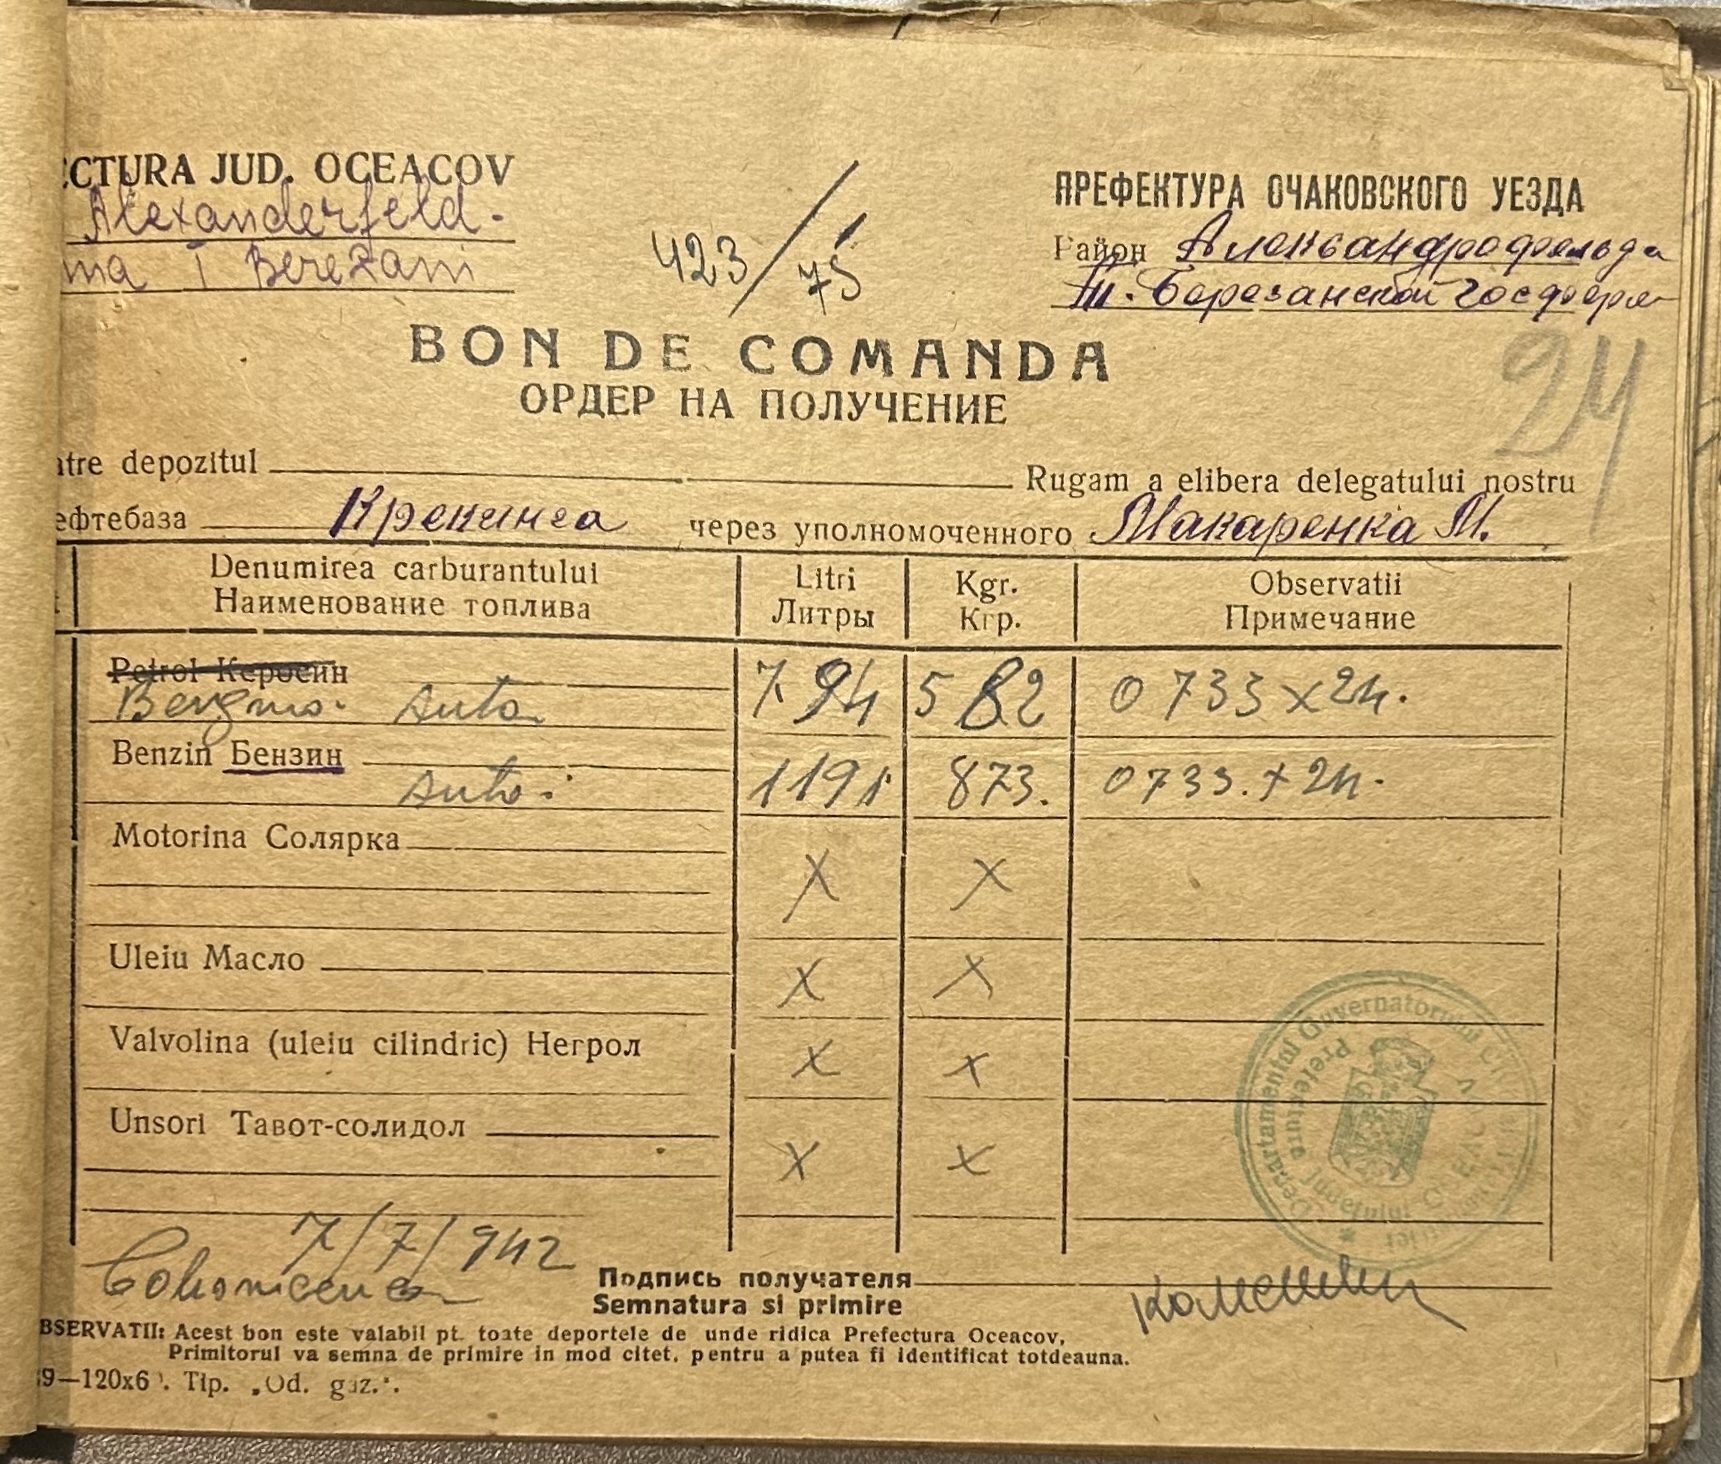 ECTURA JUD. OCEACOV
Alexanderfeld.
ma I Berezani
423/75
ПРЕФЕКТУРА ОЧАКОВСКОГО УЕЗДА
Район Александрофельда
Березанской госферм
BON DE COMANDA
ОРДЕР НА ПОЛУЧЕНИЕ
24
ătre depozitul Rugam a elibera delegatului nostru
ефтебаза Крекинга через уполномоченного Макаренка М.
Denumirea carburantului Litri Kgr. Observatii
Наименование топлива Литры Кгр. Примечание
Petrol Керосин
Auto 794 582 0733 x 24.
Benzin Бензин
Auto 1191 873. 0733. x 24.
Motorina Солярка
X X
Uleiu Масло
X X
Valvolina (uleiu cilindric) Негрол
X X
Unsori Тавот-солидол
X X
Departamentul Guvernatoriului
Prefectura Judeţului
7/7/942
Подпись получателя
Semnatura si primire
BSERVATII: Acest bon este valabil pt. toate deportele de unde ridica Prefectura Oceacov,
Primitorul va semna de primire in mod citet, pentru a putea fi identificat totdeauna.
9—120x6 . Tip. „Od. gaz.".